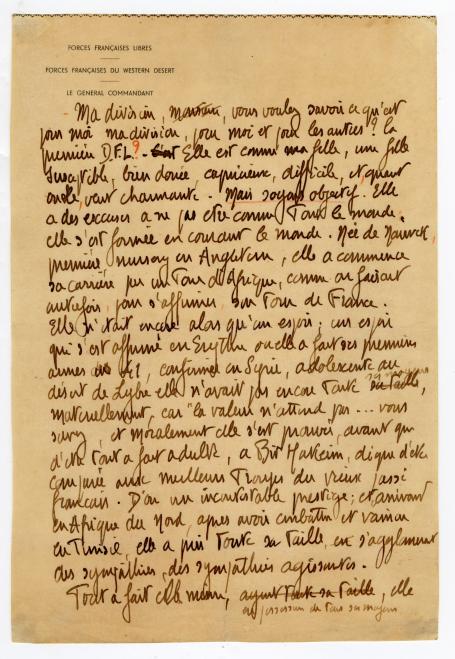 FORCES FRANÇAISES LIBRES
FORCES FRANÇAISES DU WESTERN DESERT
LE GENERAL COMMANDANT
- Ma division, monsieur, vous voulez savoir ce qu'est
pour moi ma division, pour moi et pour les autres ? la
première D.F.L ? - Elle est comme ma fille, une fille
susceptible, bien douée, capricieuse, difficile, et quant
elle veut charmante. Mais soyons objectif. Elle
a des excuses a ne pas etre comme Tout le monde,
elle s'est formée en courant le monde. Née de
première nursery en Angleterre, elle a commencé
sa carrière par un Tour d'Afrique, comme on faisait
autrefois, pour s'affirmer, son Tour de France.
Elle n'était encore alors qu'un espoir, un espoir
qui s'est affirmé en Erythrée ou elle a fait ses premières
armes en 41, confirmé en Syrie, adolescente au
désert de Lybie elle n'avait pas encore toute sa taille,
ses moyens
materiellement, car "la valeur n'attend pas ... vous
savez, et moralement elle s'est prouvée, avant que
d'être tout a fait adulte, a Bir Hakeim, digne d'etre
comparée aux meilleurs Troupes du vieux passé
français. D'ou un incontestable prestige ; et arrivant
en Afrique du Nord, apres avoir combattu et vaincu
en Tunisie, elle a pris Toute sa Taille, en s'agglomerant
des sympathies, des sympathies agissantes.
Tout a fait elle meme, ayant Toute sa Taille, elle
en possession de tous ses moyens